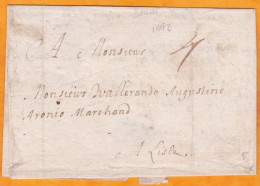 1692
A Monsieur
Monsieur Wallerande Augustine
Aronio Marchand
A Lisle